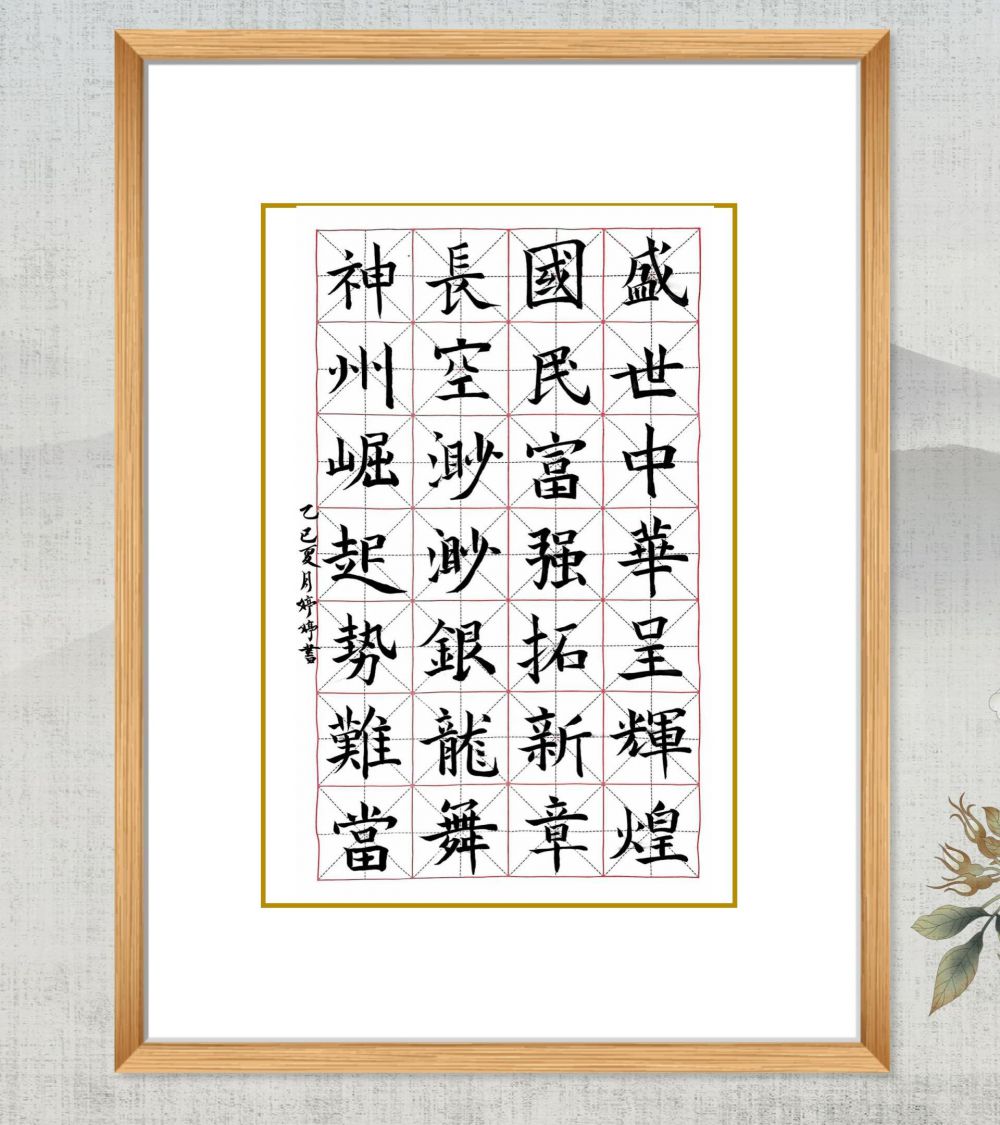 盛世中華呈輝煌
國民富强拓新章
長空渺渺銀龍舞
神州崛起势難當
乙巳夏月婷婷書